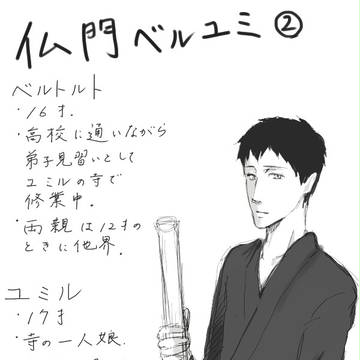 仏門ベルユミ②
ベルトルト
・16才.
・高校に通いながら
弟子見習いとして
ユミルの寺で
修業中.
・両親は12才の
ときに他界.
ユミル
・17才
・寺の一人娘.